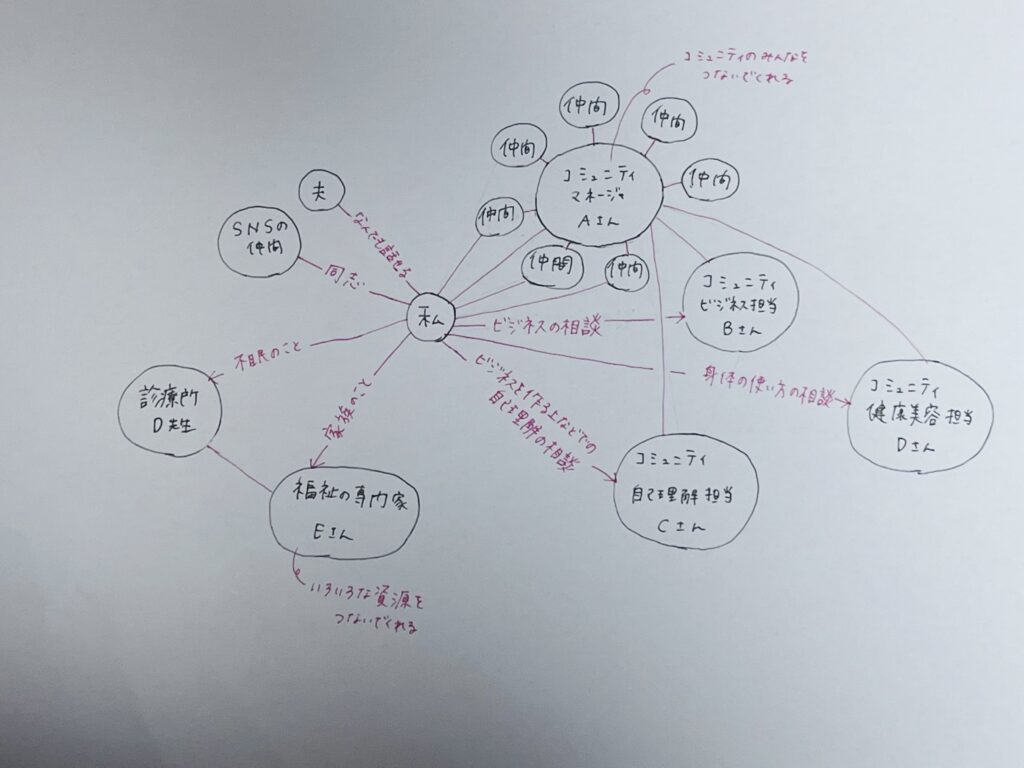 コミュニティのみんなを
つないでくれる
仲間
仲間
仲間
仲間
コミュニティ
マネージャ
Aさん
仲間
仲間
仲間
夫
なんでも話せる
SNSの
仲間
同志
私
コミュニティ
ビジネス担当
Bさん
ビジネスの相談
不眠のこと
診療所
D先生
家族のこと
ビジネスを作る上などでの
自己理解の相談
身体の使い方の相談
コミュニティ
健康美容担当
Dさん
コミュニティ
自己理解担当
Cさん
福祉の専門家
Eさん
いろいろな資源を
つないでくれる